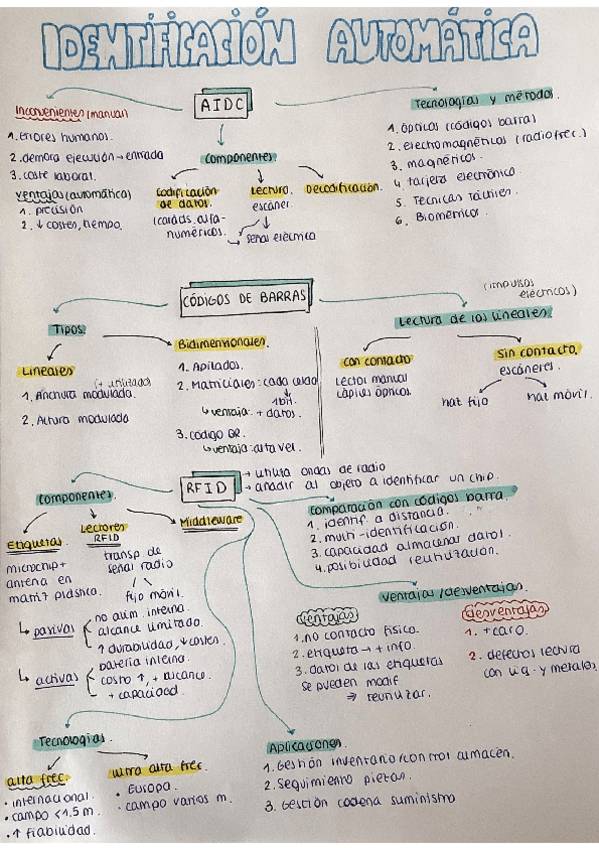 IDENTIFICACIÓN AUTOMÁTICA
AIDC
Inconvenientes (manual)
1. errores humanos.
2. demora ejecución → entrada
3. coste laboral.
ventajas (automática)
1. precisión
2. ↓ costes, tiempo.
componentes
Codificación de datos.
(caracts. alfa-
numéricos.
Lectura.
escáner.
→ señal eléctrica
Decodificación.
Tecnologías y métodos.
1. ópticos (códigos barras)
2. electromagnéticos (radiofrec.)
3. magnéticos.
4. tarjeta electrónica.
5. Técnicas táctiles.
6. Biométricos.
CÓDIGOS DE BARRAS
Tipos
Lineales
(+ utilizados)
1. Anchura modulada.
2. Altura modulada
Bidimensionales.
1. Apilados.
2. Matriciales: cada celda
1bit.
↳ ventaja: + datos.
3. código QR.
↳ ventaja: alta vel.
(impulsos
eléctricos)
Lectura de los lineales
con contacto
lector manual
lápices ópticos.
sin contacto.
escáneres.
haz fijo
haz móvil.
RFID
→ utiliza ondas de radio
→ añadir al objeto a identificar un chip.
componentes.
Etiquetas.
microchip +
antena en
matriz plástica.
Lectores
RFID
transp. de
señal radio
fijo móvil.
Middleware
↳ pasivas
no alim. interna.
alcance limitado.
↑ durabilidad, ↓ costes.
↳ activas
batería interna.
costo ↑, + alcance.
+ capacidad.
comparación con códigos barra.
1. identif. a distancia.
2. multi-identificación.
3. capacidad almacenar datos.
4. posibilidad reutilización.
ventajas/desventajas.
ventajas
1. no contacto físico.
2. etiqueta → + info.
3. datos de las etiquetas
se pueden modif
⇒ reutilizar.
desventajas
1. + caro.
2. defectos lectura
con líq. y metales.
Tecnologías.
alta frec.
• internacional.
• campo < 1.5 m.
• ↑ fiabilidad.
ultra alta frec.
• Europa.
• campo varios m.
Aplicaciones.
1. Gestión inventario/control almacén.
2. Seguimiento piezas.
3. Gestión cadena suministro